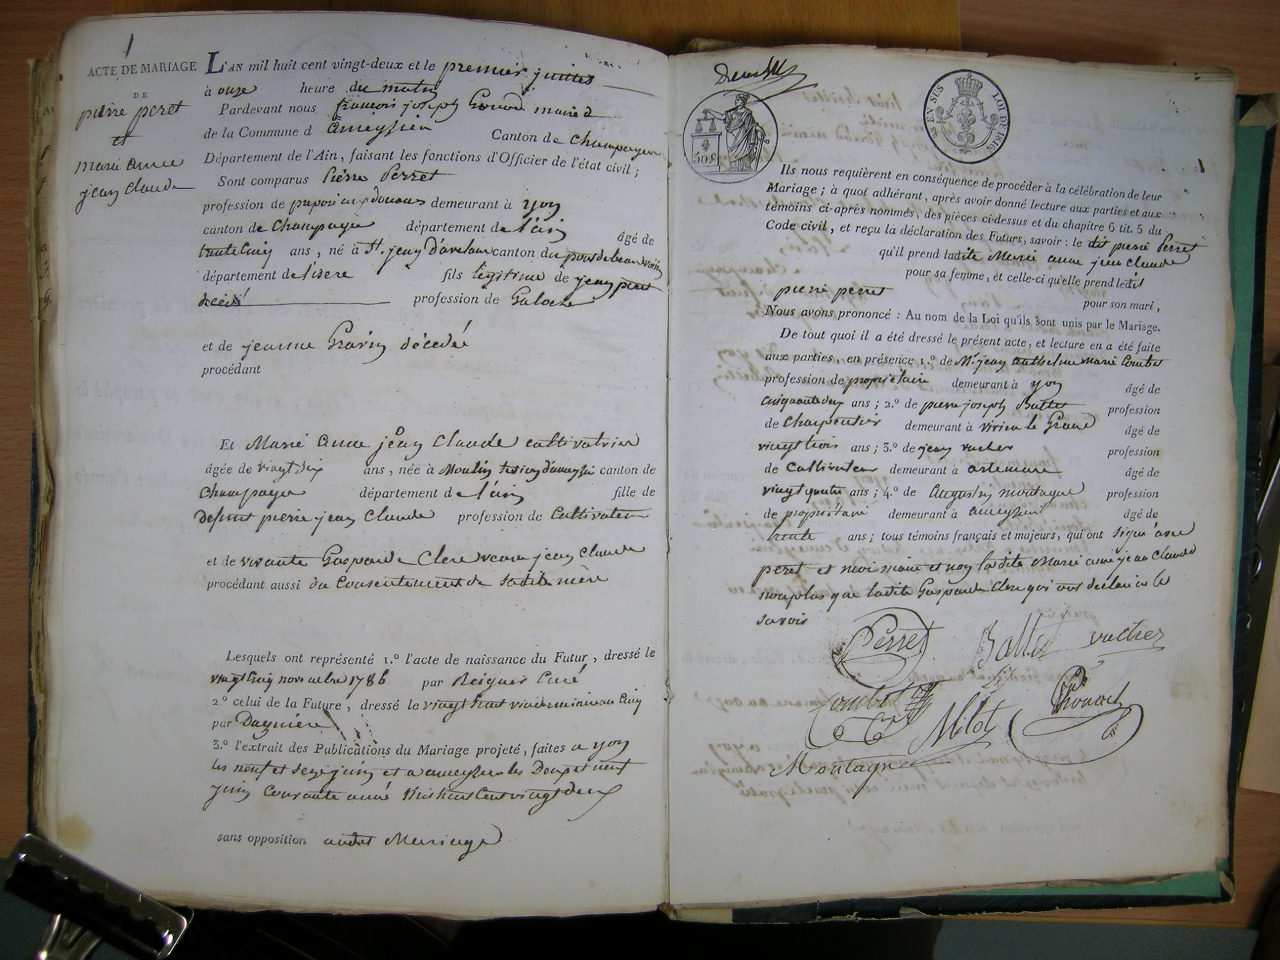 1
ACTE DE MARIAGE
DE
pierre peret
et
marie anne
jean claude
L'AN mil huit cent vingt-deux et le premier juillet
à onze heure du matin
Pardevant nous françois joseph maire d
de la Commune d ameyzieu Canton de champagne
Département de l'Ain, faisant les fonctions d'Officier de l'état civil;
Sont comparus Pierre Perret
profession de demeurant à yon
canton de Champagne département de l'ain âgé de
trente cinq ans, né à St. jean d'avelanne canton du pont de beauvoisin
département de l'isere fils légitime de jean peret
décédé profession de
et de jeanne décédée
procédant
Et Marie anne jean Claude cultivatrice
âgée de vingt six ans, née à Moulin canton de
Champagne département de l'ain fille de
defunt pierre jean Claude profession de Cultivateur
et de vivante Gasparde Clerc veuve jean Claude
procédant aussi du Consentement de sadite mère
Lesquels ont représenté 1.º l'acte de naissance du Futur, dressé le
vingt cinq novembre 1786 par Curé
2.º celui de la Future, dressé le vingt huit vindemiaire an Cinq
par
3.º l'extrait des Publications du Mariage projeté, faites a yon
les neuf et seize juin et a ameyzieu les et neuf
juin Courante année Mil huit Cent vingt deux
sans opposition audit Mariage
EN SUS
LOI DE 1816
50 c
1
Ils nous requièrent en conséquence de procéder à la célébration de leur
Mariage; à quoi adhérant, après avoir donné lecture aux parties et aux
témoins ci-après nommés, des pièces ci-dessus et du chapitre 6 tit. 5 du
Code civil, et reçu la déclaration des Futurs, savoir: le dit pierre Perret
qu'il prend ladite Marie anne jean claude
pour sa femme, et celle-ci qu'elle prend ledit
pierre peret pour son mari,
Nous avons prononcé: Au nom de la Loi qu'ils sont unis par le Mariage.
De tout quoi il a été dressé le présent acte, et lecture en a été faite
aux parties, en présence 1.º de Mr. jean marie Combet
profession de propriétaire demeurant à yon âgé de
cinquante deux ans; 2.º de pierre joseph Ballet profession
de Charpentier demeurant à virieu le Grand âgé de
vingt trois ans; 3.º de jean vucher profession
de Cultivateur demeurant à artemare âgé de
vingt quatre ans; 4.º de montagne profession
de propriétaire demeurant à ameyzieu âgé de
trente ans; tous témoins français et majeurs, qui ont signé avec
peret et moi maire et non ladite Marie anne jean Claude
non plus que ladite Gasparde Clerc qui ont déclaré ne le
savoir
Perret Ballet vucher
Combet Milot
Montagne